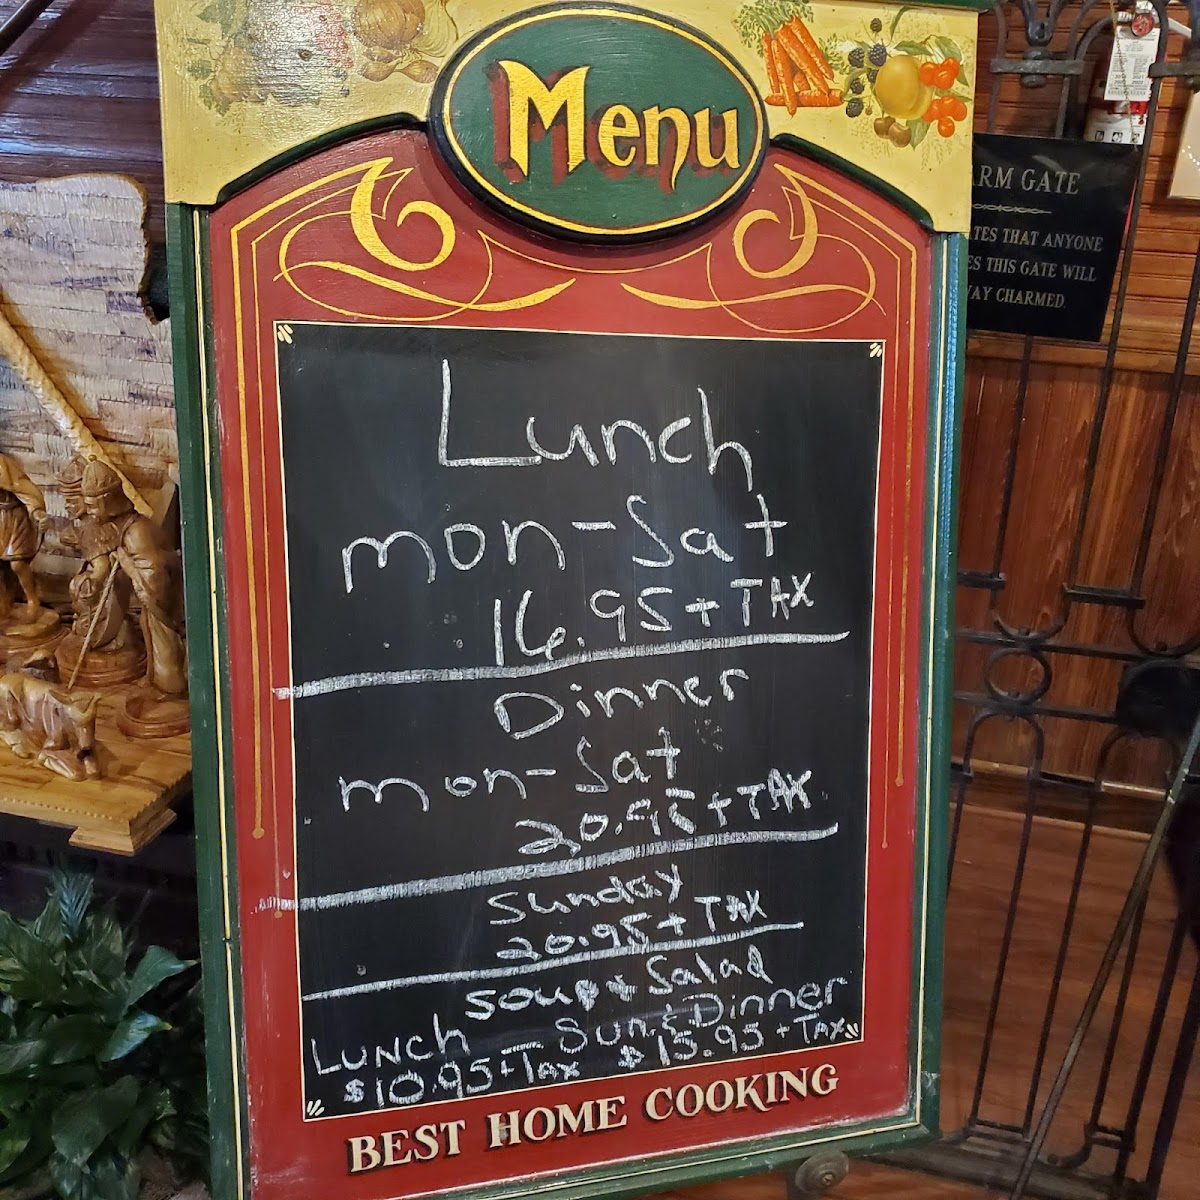 Menu
Lunch
mon-Sat
16.95+TAX
Dinner
mon-Sat
20.95+TAX
Sunday
20.95+TAX
Soup+Salad
LUNCH - Sun & Dinner
$10.95+Tax $15.95+TAX
BEST HOME COOKING
ARM GATE
ATES THAT ANYONE
ES THIS GATE WILL
WAY CHARMED.